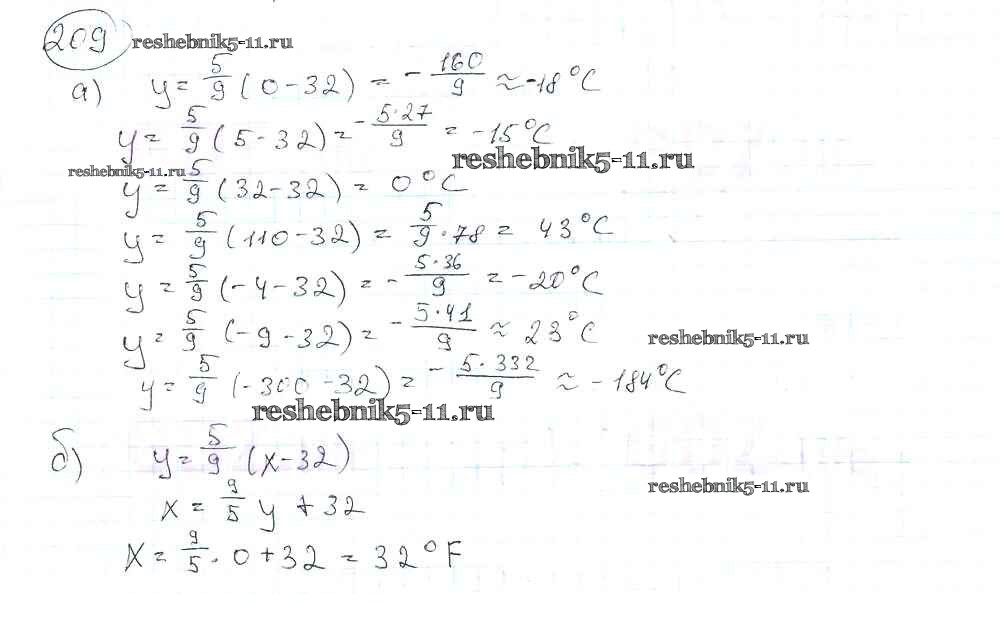 209 reshebnik5-11.ru
а) y = 5/9 (0 - 32) = - 160/9 ≈ -18°C
y = 5/9 (5 - 32) = - 5·27/9 = -15°C
reshebnik5-11.ru
reshebnik5-11.ru
y = 5/9 (32 - 32) = 0°C
y = 5/9 (110 - 32) = 5/9 · 78 = 43°C
y = 5/9 (-4 - 32) = - 5·36/9 = -20°C
y = 5/9 (-9 - 32) = - 5·41/9 ≈ 23°C
reshebnik5-11.ru
y = 5/9 (-300 - 32) = - 5·332/9 ≈ -184°C
reshebnik5-11.ru
б) y = 5/9 (x - 32)
reshebnik5-11.ru
x = 9/5 y + 32
x = 9/5 · 0 + 32 = 32°F